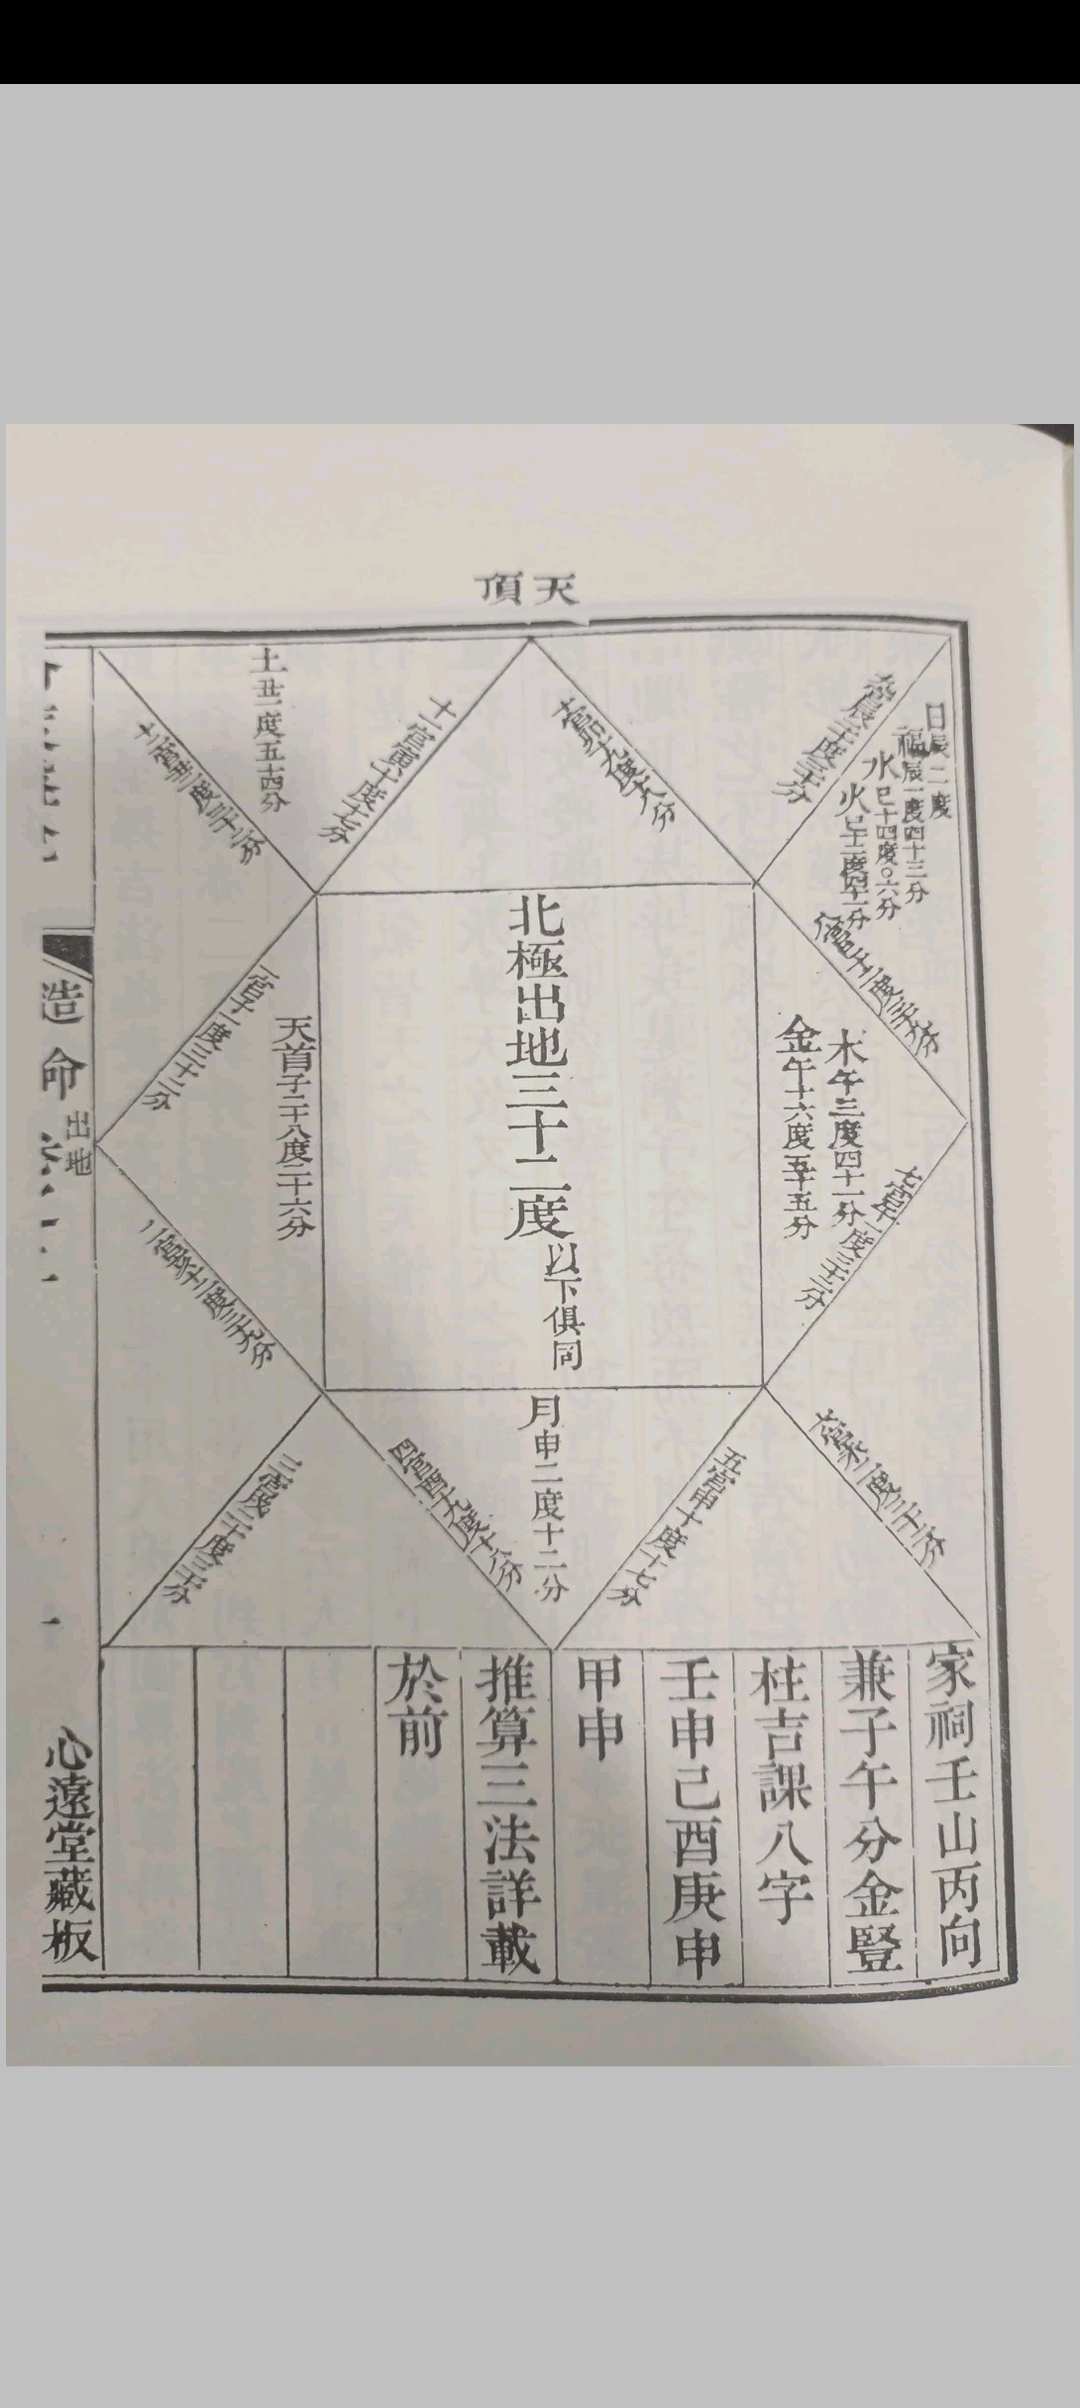 天頂
日辰二度
福辰一度四十三分
水巳十四度〇六分
火巳十二度四十一分
九宮辰二十度三十分
十宮卯十九度十八分
十一宮寅十度十七分
土丑一度五十四分
十二宮丑二度三十二分
八宮巳十二度三十九分
木午三度四十一分
金午十六度五十五分
七宮午一度三十二分
北極出地三十二度以下俱同
天首子二十八度二十六分
一宮子一度三十二分
二宮亥十二度三十九分
六宮未二度三十二分
五宮申十度十七分
月申二度十二分
四宮酉十九度十八分
三宮戌二十度三十分
家祠壬山丙向
兼子午分金豎
柱吉課八字
壬申己酉庚申
甲申
推算三法詳載
於前
造命
出地
心遠堂藏板